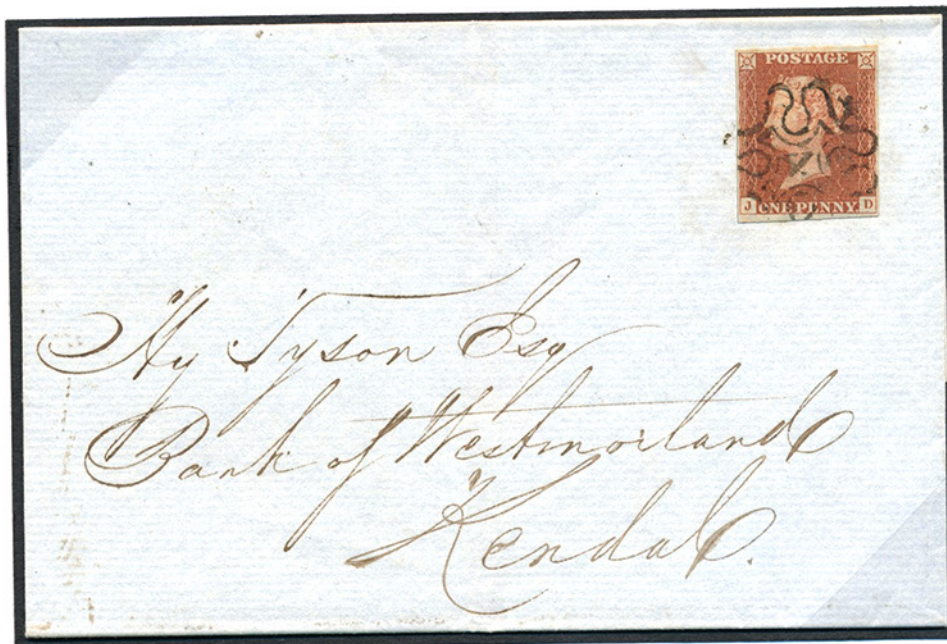 POSTAGE
J ONE PENNY. D
Hy Tyson Esq
Bank of Westmorland
Kendal.